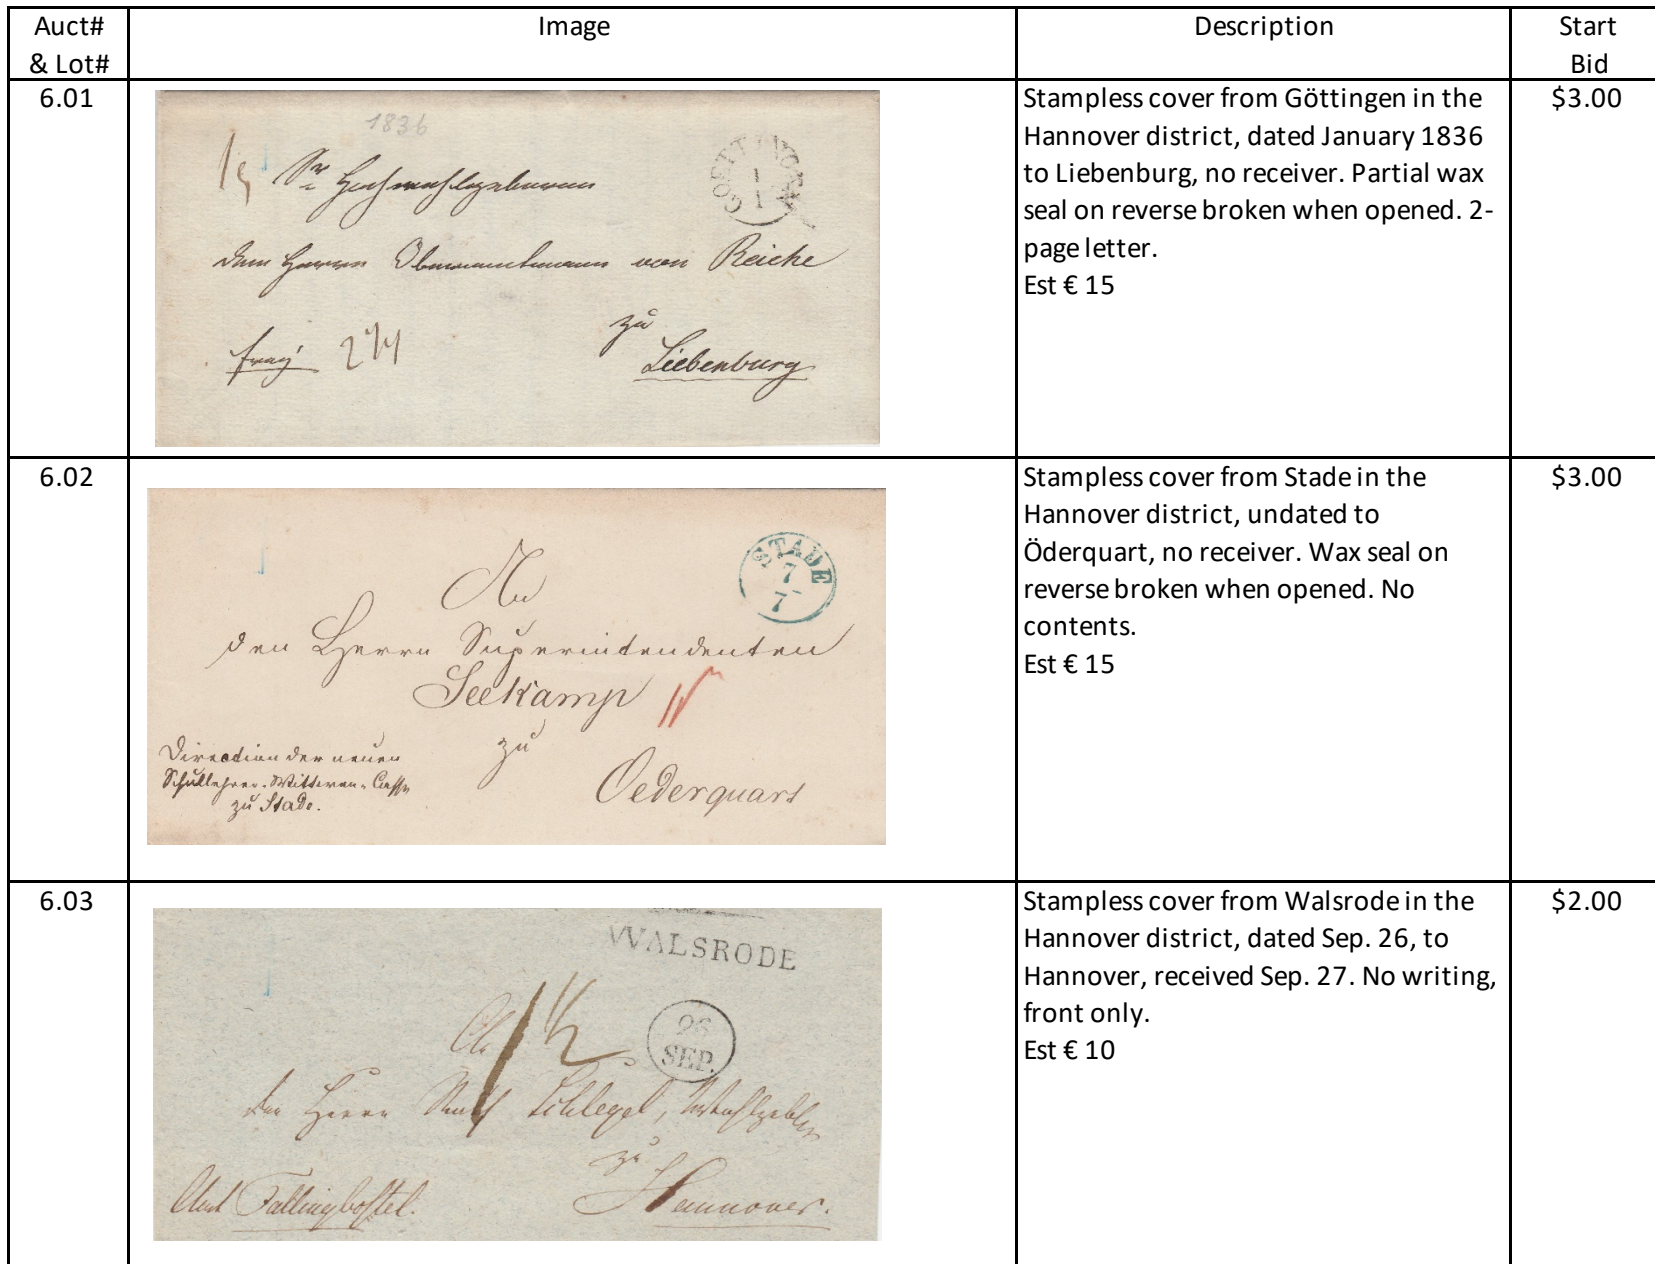 Auct#
& Lot#
Image
Description
Start
Bid
6.01
1836
GOETTINGEN
1
1
dem Herrn Oberamtmann von Reiche
zu
Liebenburg
Stampless cover from Göttingen in the
Hannover district, dated January 1836
to Liebenburg, no receiver. Partial wax
seal on reverse broken when opened. 2-
page letter.
Est € 15
$3.00
6.02
STADE
7
7
An
den Herrn Superintendenten
Seekamp
zu
Oederquart
Direction der neuen
Schullehrer-Wittwen-Casse
zu Stade.
Stampless cover from Stade in the
Hannover district, undated to
Öderquart, no receiver. Wax seal on
reverse broken when opened. No
contents.
Est € 15
$3.00
6.03
WALSRODE
26
SEP.
1½
den Herrn Schlegel,
zu
Hannover.
Amt Fallingbostel.
Stampless cover from Walsrode in the
Hannover district, dated Sep. 26, to
Hannover, received Sep. 27. No writing,
front only.
Est € 10
$2.00